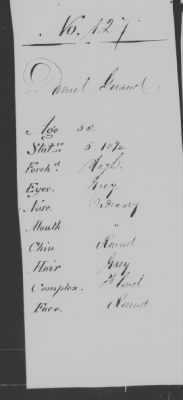 No. 127
Daniel
Age 55
Stat.re 5. 10½
Foreh.d High
Eyes. Grey
Nose Ordinary
Mouth "
Chin Round
Hair Grey
Complex.
Face. Round